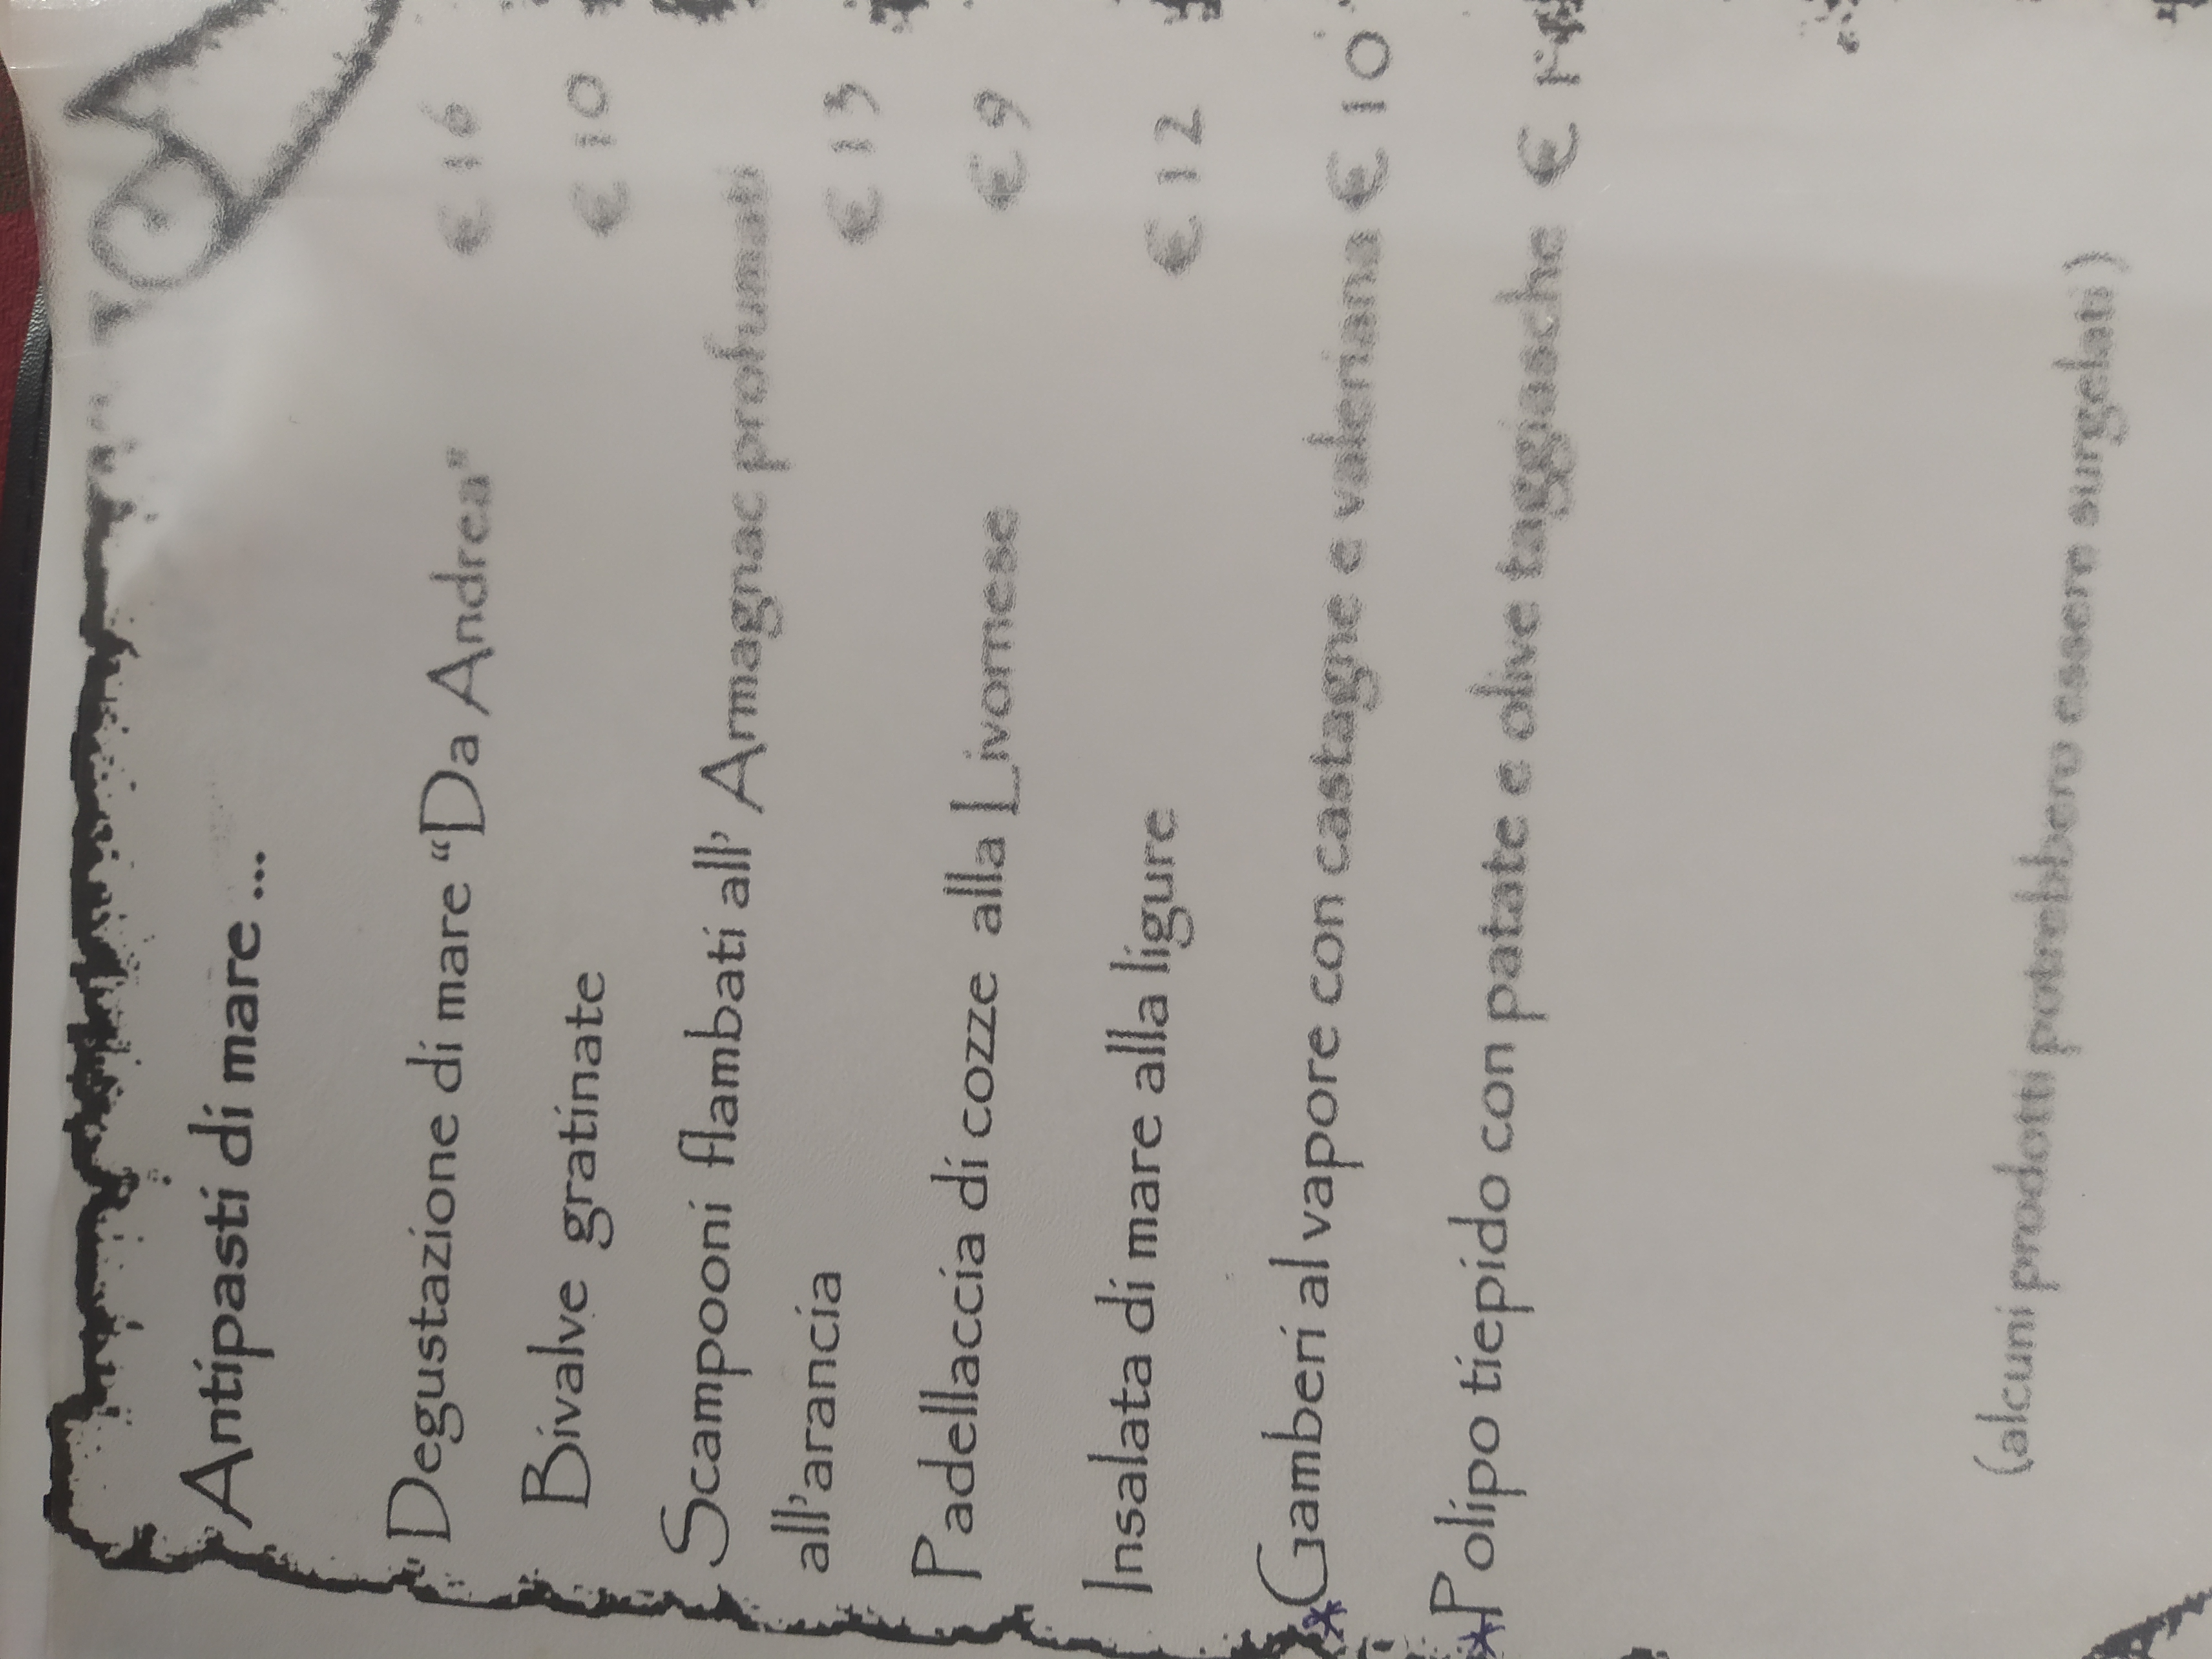 Antipasti di mare ...
Degustazione di mare “Da Andrea” € 16
Bivalve gratinate € 10
Scampooni flambati all’ Armagnac profumati
all’arancia € 15
Padellaccia di cozze alla Livornese € 9
Insalata di mare alla ligure € 12
*Gamberi al vapore con castagne e valeriana € 10
*Polipo tiepido con patate e olive taggiasche €
(alcuni prodotti potrebbero essere surgelati)